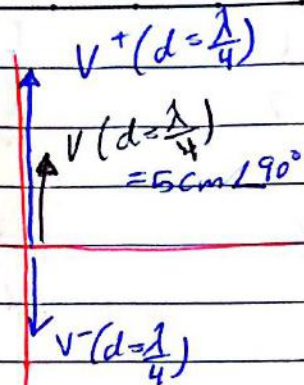 V⁺(d=λ/4)
V(d=λ/4)
=5cm∠90°
V⁻(d=λ/4)